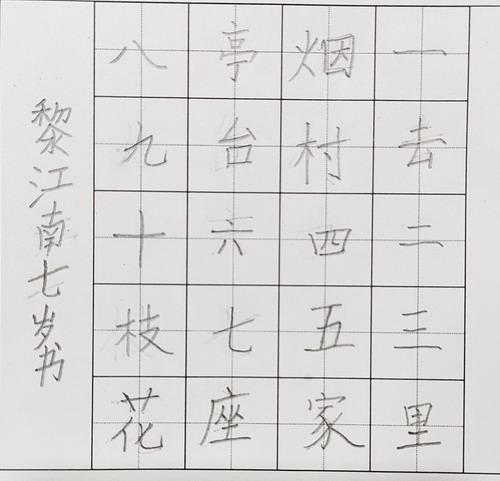 一去二三里
烟村四五家
亭台六七座
八九十枝花
黎江南七岁书